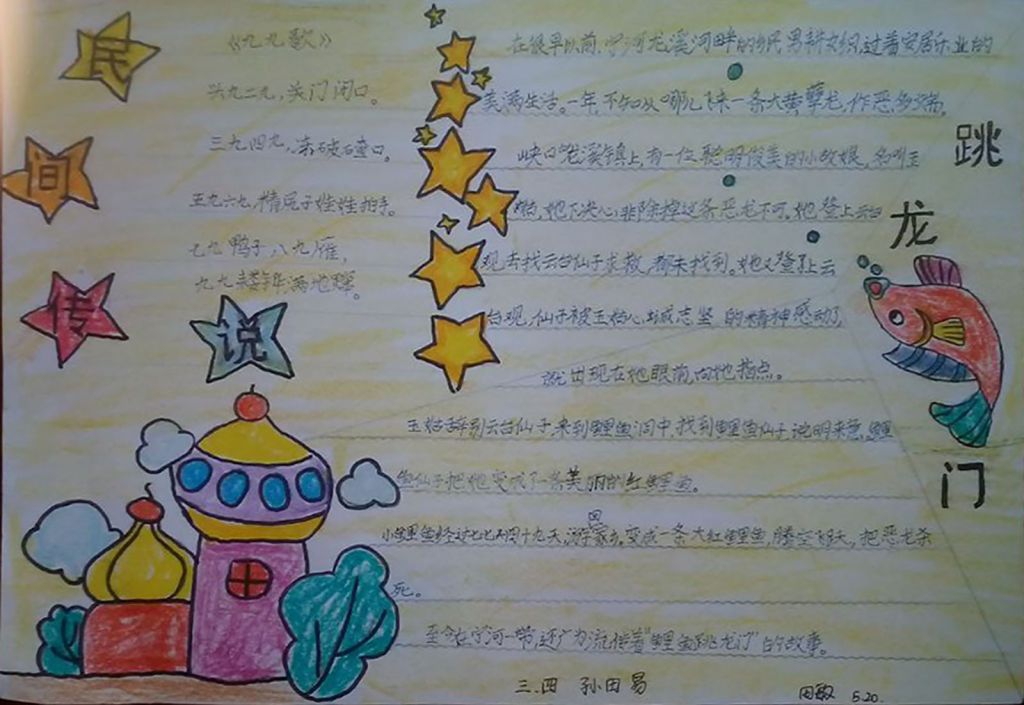 民
间
传
说
《九九歌》
头九二九，关门闭口。
三九四九，冻破碴口。
五九六九，精尼子娃娃拍手。
七九鸭子八九雁，
九九满地
在很早以前，宁河龙溪河畔的乡民男耕女织，过着安居乐业的
美满生活。一年，不知从哪儿下来一条大黄孽龙，作恶多端。
峡口龙溪镇上，有一位聪明俊美的小姑娘，名叫玉
姑，她下决心，非除掉这条恶龙不可。她登上云台
观去找云台仙子求救，都未找到。她又登上云
台观，仙子被玉姑心诚志坚的精神感动了
就出现在她眼前，向她指点。
玉姑辞别云台仙子，来到鲤鱼洞中，找到鲤鱼仙子说明来意，鲤
鱼仙子把她变成了一条美丽的红鲤鱼。
小鲤鱼经过七七四十九天，游回家乡，变成一条大红鲤鱼，腾空飞天，把恶龙杀
死。
至今在宁河一带，还广为流传着“鲤鱼跳龙门”的故事。
跳
龙
门
三.四 孙田易
5.20.